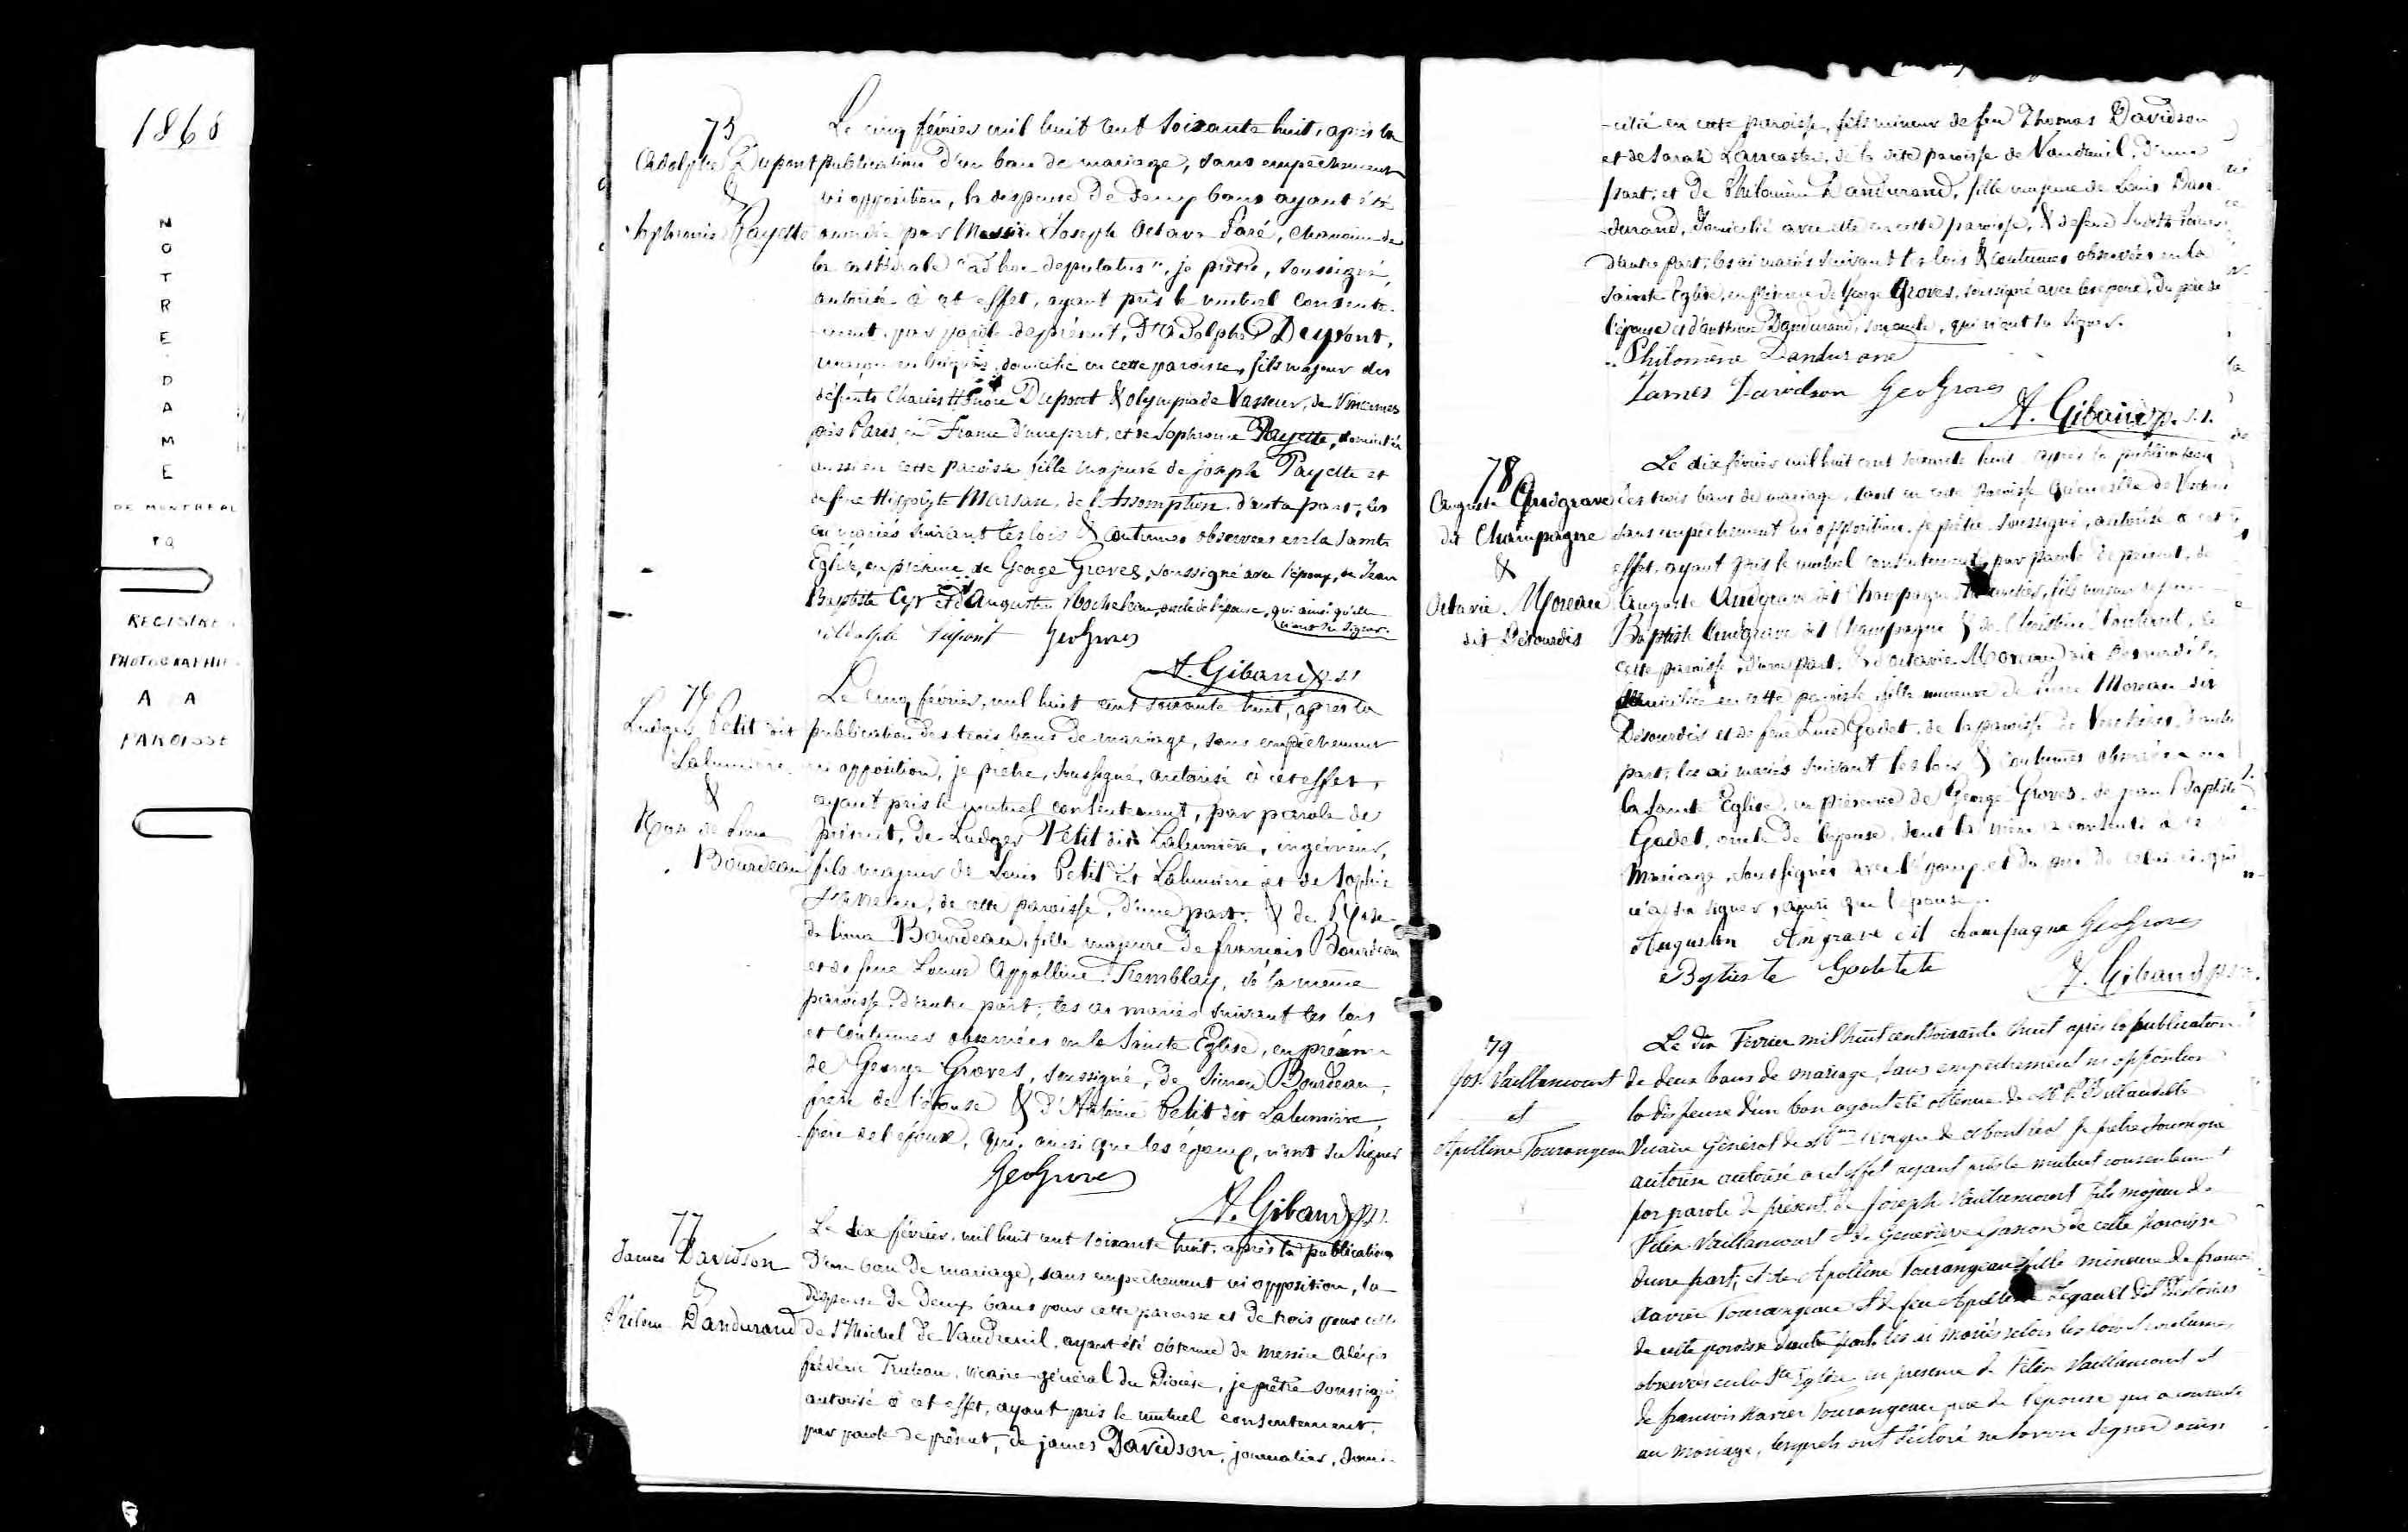 1868
NOTRE-DAME
DE MONTREAL
P Q
REGISTRE
PHOTOGRAPHIE
A A
PAROISSE
75
Adolphe Dupont
&
Sophronie Payette
Le cinq février mil huit cent soixante huit, après la
publication d'un ban de mariage, sans empêchement
ni opposition, la dispense de deux bans ayant été
accordée par Messire Joseph Octave Paré, Chanoine de
la cathédrale "ad hoc deputatus", je prêtre, soussigné,
autorisé à cet effet, ayant pris le mutuel consente-
-ment, par parole de présent, d'Adolphe Dupont,
domicilié en cette paroisse, fils majeur des
défunts Charles Dupont & Olympiade Vasseur, de Vincennes
près Paris, en France d'une part, et de Sophronie Payette, domiciliée
aussi en cette paroisse fille majeure de Joseph Payette et
de feue Hippolyte Marsan, de l'Assomption d'autre part, les
ai mariés suivant les lois & coutumes observées en la Sainte
Eglise, en présence de George Groves, soussigné avec l'époux, de Jean
Baptiste Cyr et d'Augustin Rocheleau, oncle de l'épouse, qui ainsi qu'elle
n'ont su signer.
Adolphe Dupont Geo Groves
A. Giband p.s.s.
76
Ludger Petit dit
Lalumière
&
Rose de Lima
Bourdeau
Le cinq février, mil huit cent soixante huit, après la
publication des trois bans de mariage, sans empêchement
ni opposition, je prêtre, soussigné, autorisé à cet effet,
ayant pris le mutuel consentement, par parole de
présent, de Ludger Petit dit Lalumière, ingénieur,
fils majeur de Louis Petit dit Lalumière et de Sophie
de cette paroisse, d'une part, & de Rose
de Lima Bourdeau, fille majeure de François Bourdeau
et de feue Louise Appolline Tremblay, de la même
paroisse d'autre part, les ai mariés suivant les lois
et coutumes observées en la Sainte Eglise, en présence
de George Groves, soussigné, de Simon Bourdeau,
frère de l'épouse & d'Antoine Petit dit Lalumière,
frère de l'époux, qui, ainsi que les époux, n'ont su signer
Geo Groves
A. Giband p.s.s.
77
James Davidson
&
Philom. Dandurand
Le dix février, mil huit cent soixante huit, après la publication
d'un ban de mariage, sans empêchement ni opposition, la
dispense de deux bans pour cette paroisse et de trois pour celle
de St Michel de Vaudreuil, ayant été obtenue de Messire Alexis
Frédéric Truteau, vicaire-général du Diocèse, je prêtre soussigné
autorisé à cet effet, ayant pris le mutuel consentement,
par parole de présent, de James Davidson, journalier, domi-
-cilié en cette paroisse, fils mineur de feu Thomas Davidson
et de Sarah Lancaster, de la dite paroisse de Vaudreuil, d'une
part, et de Philomène Dandurand, fille majeure de Louis Dan-
-durand, domicilié avec elle en cette paroisse, & de feue Judith
d'autre part, les ai mariés suivant les lois & coutumes observées en la
Sainte Eglise, en présence de George Groves, soussigné avec les époux, du père de
l'épouse et d'Anthime Dandurand, son oncle, qui n'ont su signer.
Philomène Dandurand
James Davidson Geo Groves
A. Giband p.s.s.
78
Auguste Audgrave
dit Champagne
&
Octavie Moreau
dit Desourdis
Le dix février mil huit cent soixante huit après la publication
des trois bans de mariage, tant en cette paroisse qu'en celle de
sans empêchement ni opposition, je prêtre, soussigné, autorisé à cet
effet, ayant pris le mutuel consentement, par parole de présent, de
Auguste Audgrave dit Champagne, fils
Baptiste Audgrave dit Champagne & de Christine de
cette paroisse, d'une part, & d'Octavie Moreau dit Desourdis,
domiciliée en cette paroisse fille mineure de Moreau dit
Desourdis et de feue Luce Godet, de la paroisse de Verchères, d'autre
part, les ai mariés suivant les lois & coutumes observées en
la Sainte Eglise, en présence de George Groves, de Jean Baptiste
Godet, oncle de l'épouse, dont la mère a consenti à ce
mariage, soussignés avec l'époux, et du père de celui-ci, qui
n'a su signer, ainsi que l'épouse.
Augustin Angrave dit champagne Geo Groves
Bqtieste Godette
A. Giband p.s.s.
79
Jos. Vaillancourt
et
Apolline Tourangeau
Le dix Février mil huit cent soixante huit après la publication
de deux bans de mariage, sans empêchement ni opposition
la dispense d'un ban ayant été obtenue de
Vicaire Général de Mgr l'évêque de Montréal Je prêtre soussigné
autorisé autorisé à cet effet ayant pris le mutuel consentement
par parole de présent, de Joseph Vaillancourt fils majeur de
Félix Vaillancourt et de Geneviève Gascon de cette paroisse
d'une part, et de Apolline Tourangeau fille mineure de François
Xavier Tourangeau et de feu Apolline Legault dit Deslauriers
de cette paroisse d'autre part, les ai mariés selon les lois et coutumes
observées en la Ste Eglise en présence de Félix Vaillancourt et
de François Xavier Tourangeau père de l'épouse qui a consenti
au mariage, lesquels ont déclaré ne savoir signer ainsi